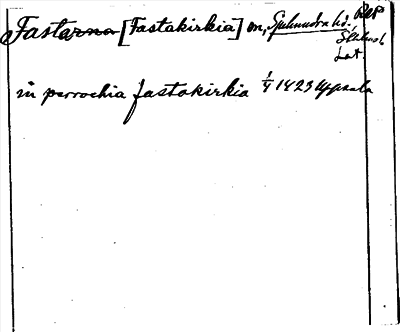 Fastarna [Fastakirkia] sn, Sjuhundra hd. RAP
Sthlms l.
Lat.
in parrochia fastakirkia 1/4 1423 Uppsala